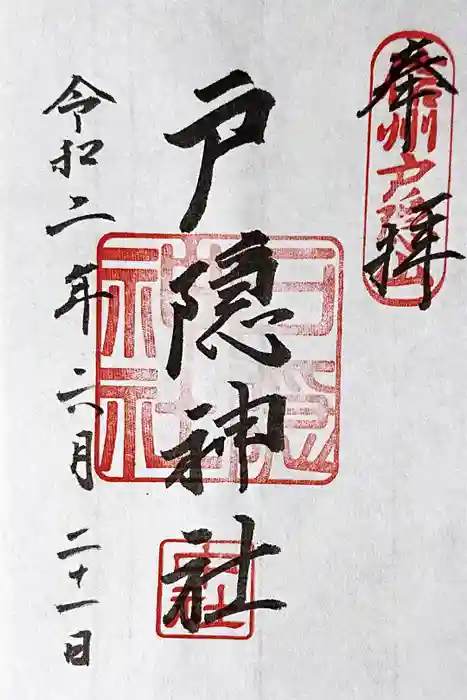 奉拝
信州戸隠山
戸隠神社
令和二年六月二十一日